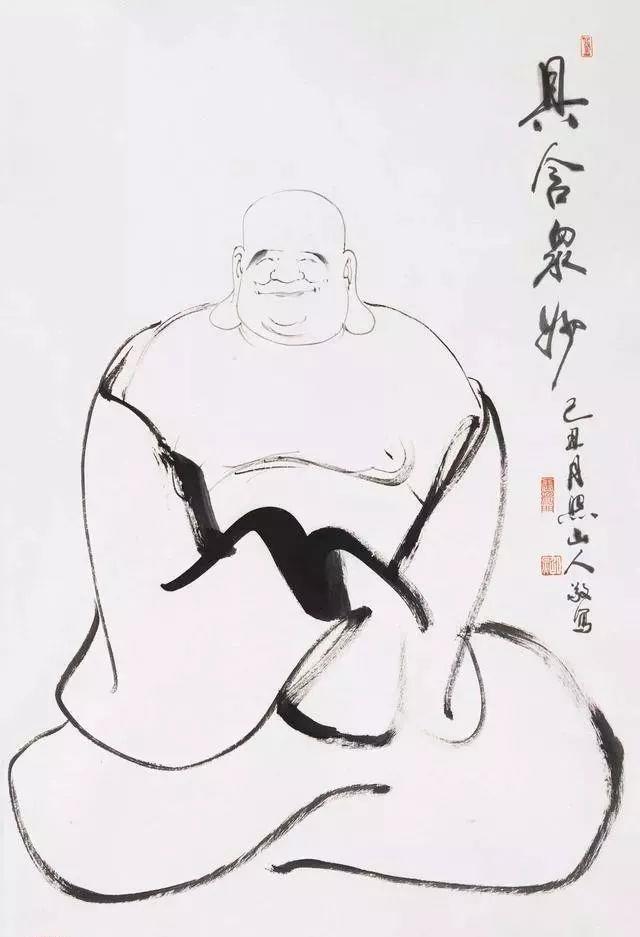 具含眾妙
己丑月照山人敬寫